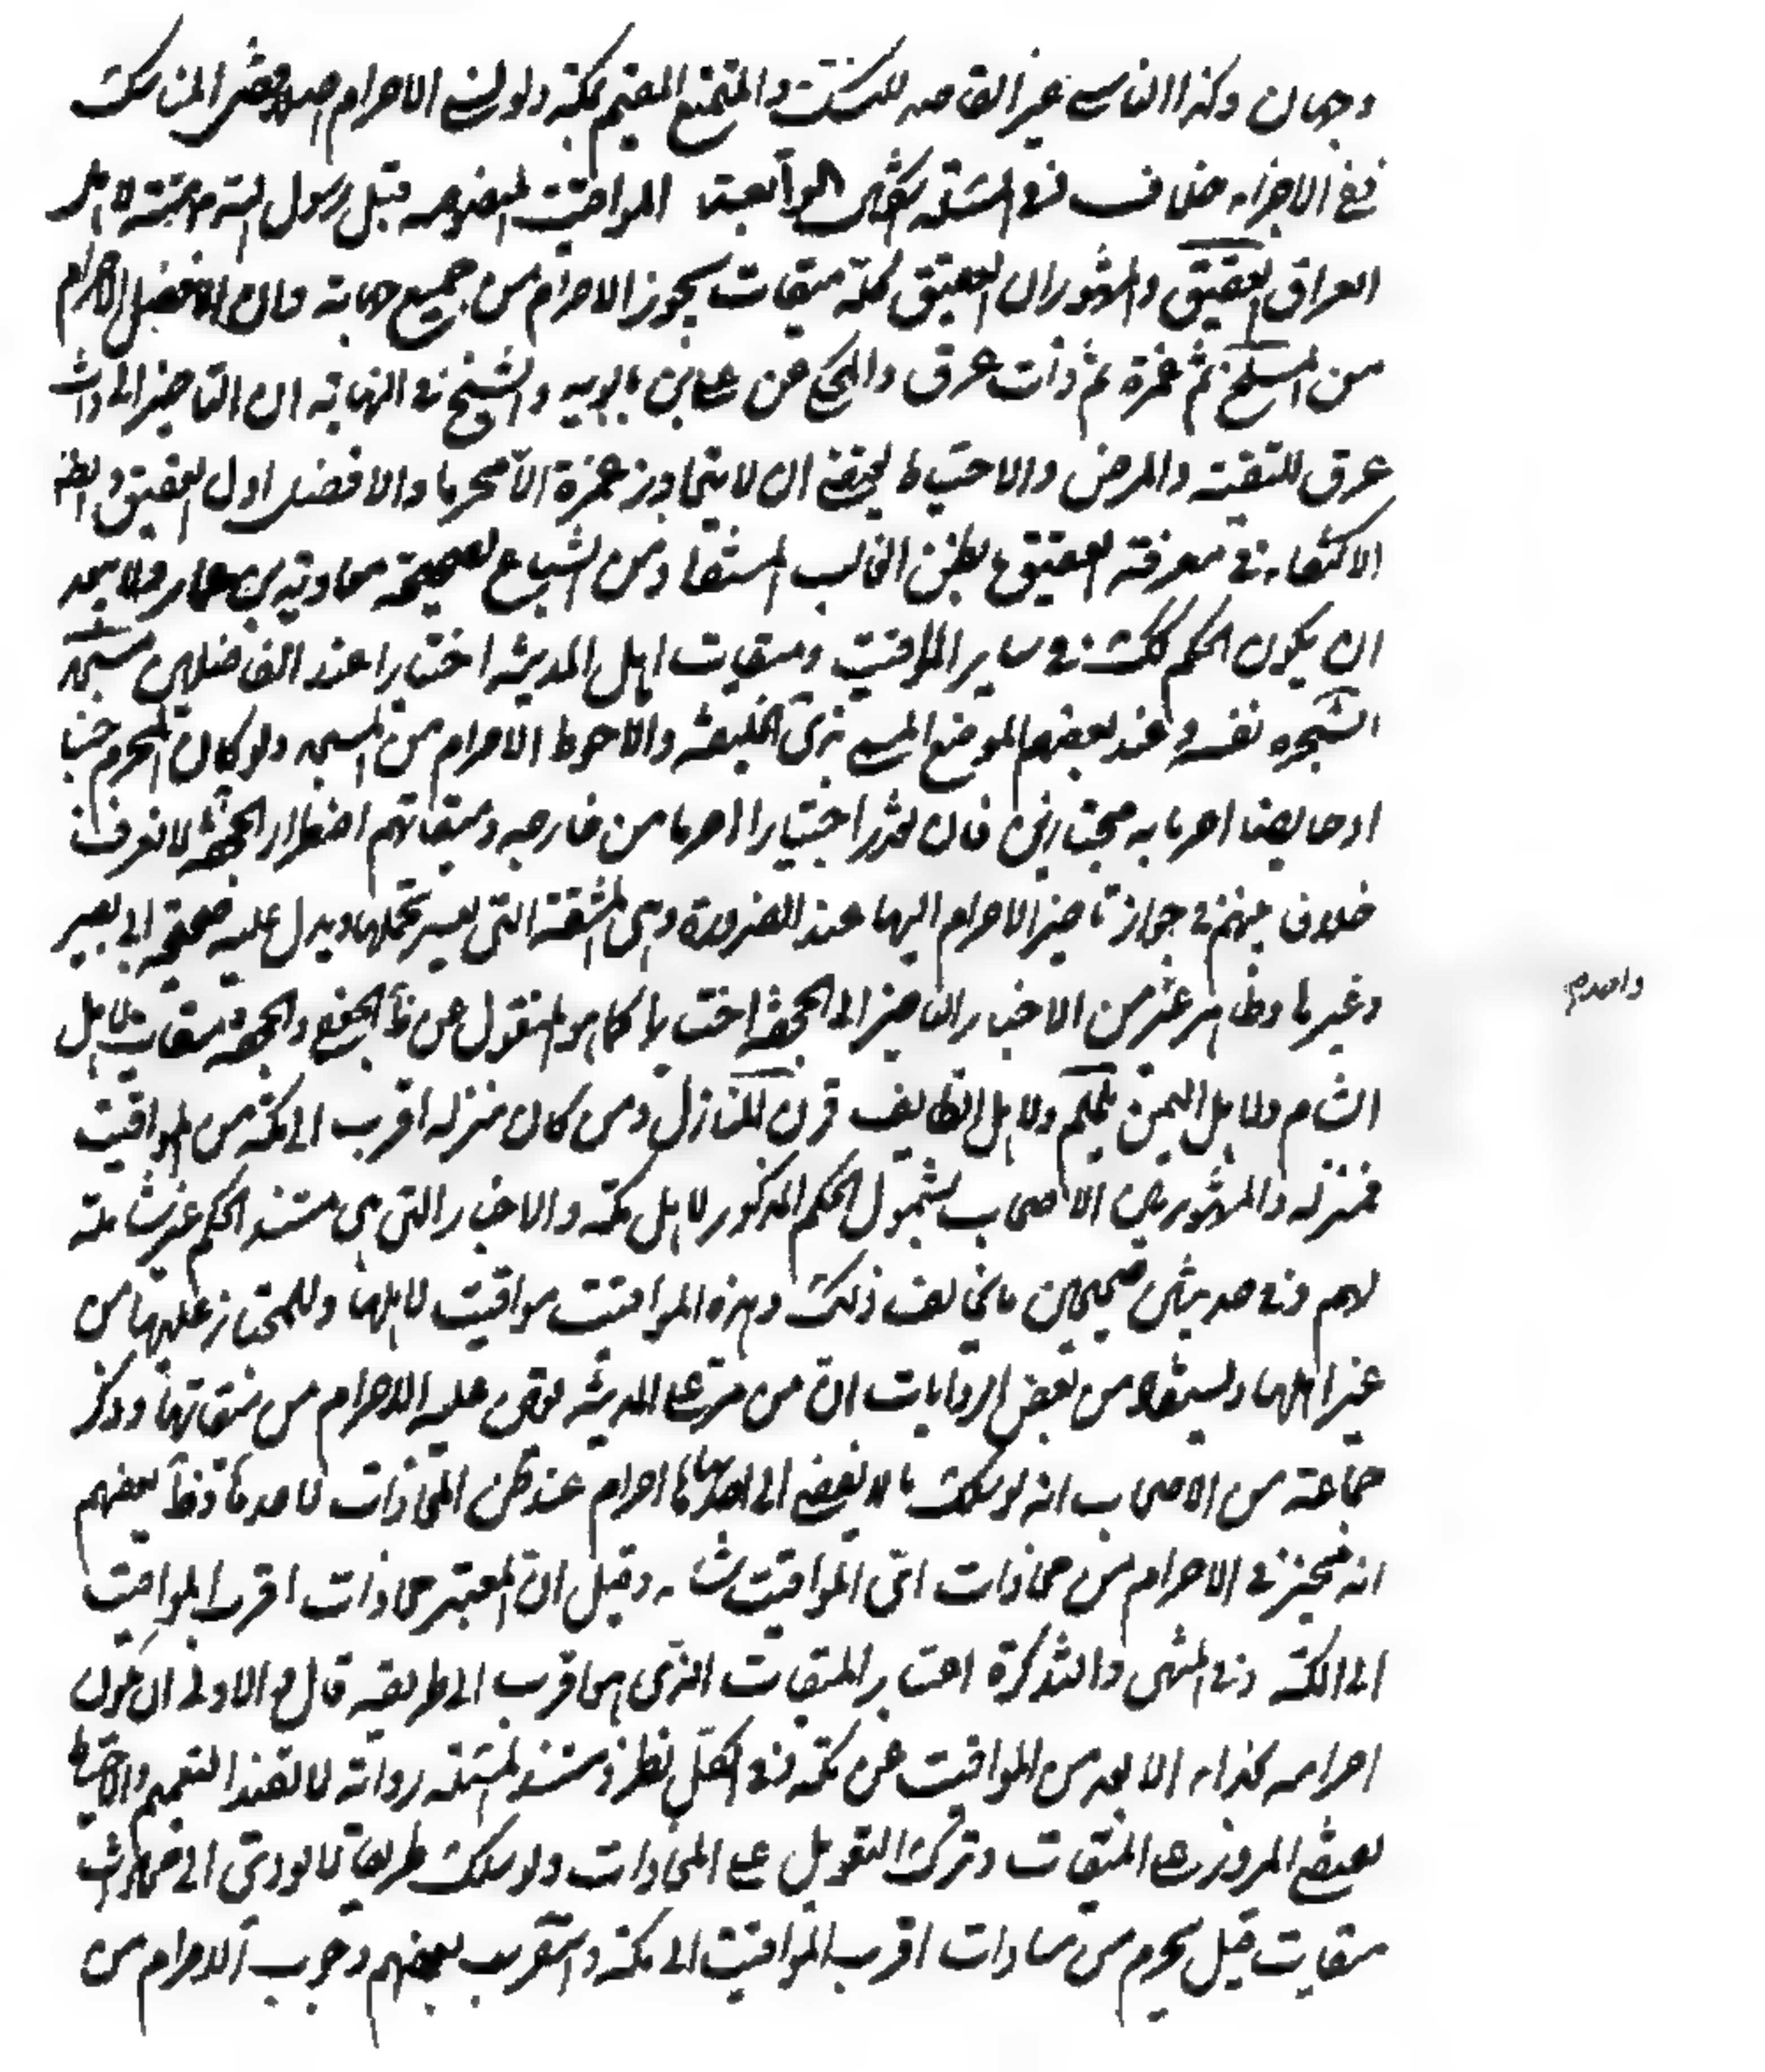 وجهان وكذا الناسي غير القاصد للنسك والمتمتع المقيم بمكة ولو نسي الاحرام حتى المناسك
ففي الاجزاء خلاف وفي المسئلة اشكال الرابعة المواقيت المنصوصه من قبل رسول الله ستة لاهل
العراق العقيق والمشهور ان العقيق كله ميقات يجوز الاحرام من جميع جهاته وان الافضل الاحرام
من المسلخ ثم غمرة ثم ذات عرق والمحكي عن علي بن بابويه والشيخ في النهاية ان التاخير الى ذات
عرق للتقية والمرض والاحتياط يقتضي ان لا يتجاوز غمرة الا محرما والافضل اول العقيق والظ
الاكتفاء في معرفة العقيق بالظن الغالب المستفاد من الشياع لصحيحة معاوية بن عمار ولا يبعد
ان يكون الحكم كك في ساير المواقيت وميقات اهل المدينة اختيارا عند الفاضلين مسجد
الشجره نفسه وعند بعضهم الموضع المسمى بذي الحليفة والاحوط الاحرام من المسجد ولو كان المحرم جنبا
او حايضا احرما به مجتازين فان تعذر اجتيازا احرما من خارجه وميقاتهم اضطرارا الجحفة لا نعرف
خلافا بينهم في جواز تاخير الاحرام اليها عند الضرورة وهي المشقة التي يعسر تحملها ويدل عليه صحيحة ابي بصير
وغيرها وظاهر غير من الاخبار التاخير الى الجحفة اختيارا كما هو المنقول عن ظ الجعفي والجحفة ميقات لاهل
الشام ولاهل اليمن يلملم ولاهل الطايف قرن المنازل ومن كان منزله اقرب الى مكة من المواقيت
فمنزله والمشهور بين الاصحاب شمول الحكم المذكور لاهل مكة والاخبار التي هي مستند الحكم غير شاملة
لهم وفي حديثين صحيحين ما يخالف ذلك وهذه المواقيت مواقيت لاهلها وللمجتاز عليها من
غير اهلها ويستفاد من بعض الروايات ان من مر على المدينة تعين عليه الاحرام من ميقاتها وذكر
جماعة من الاصحاب انه لو سلك ما لا يفضي الى احدها احرام عند ظن المحاذات لاحدها وظ بعضهم
انه مخير في الاحرام من محاذات اي المواقيت شاء وقيل ان المعتبر محاذات اقرب المواقيت
الى مكة وفي المنتهى والتذكرة اعتبار الميقات الذي هو اقرب الى طريقه قال والاولى ان يكون
احرامه بحذاء الابعد من المواقيت عن مكة وفي الكل نظر ومستند المسئلة رواية لا تفيد التعميم والاحتياط
يقتضي المرور على الميقات وترك التعويل على المحاذات ولو سلك طريقا لا يؤدي الى محاذات
ميقات قيل يحرم من مساوات اقرب المواقيت الى مكة واستقرب بعضهم وجوب الاحرام من
واحده